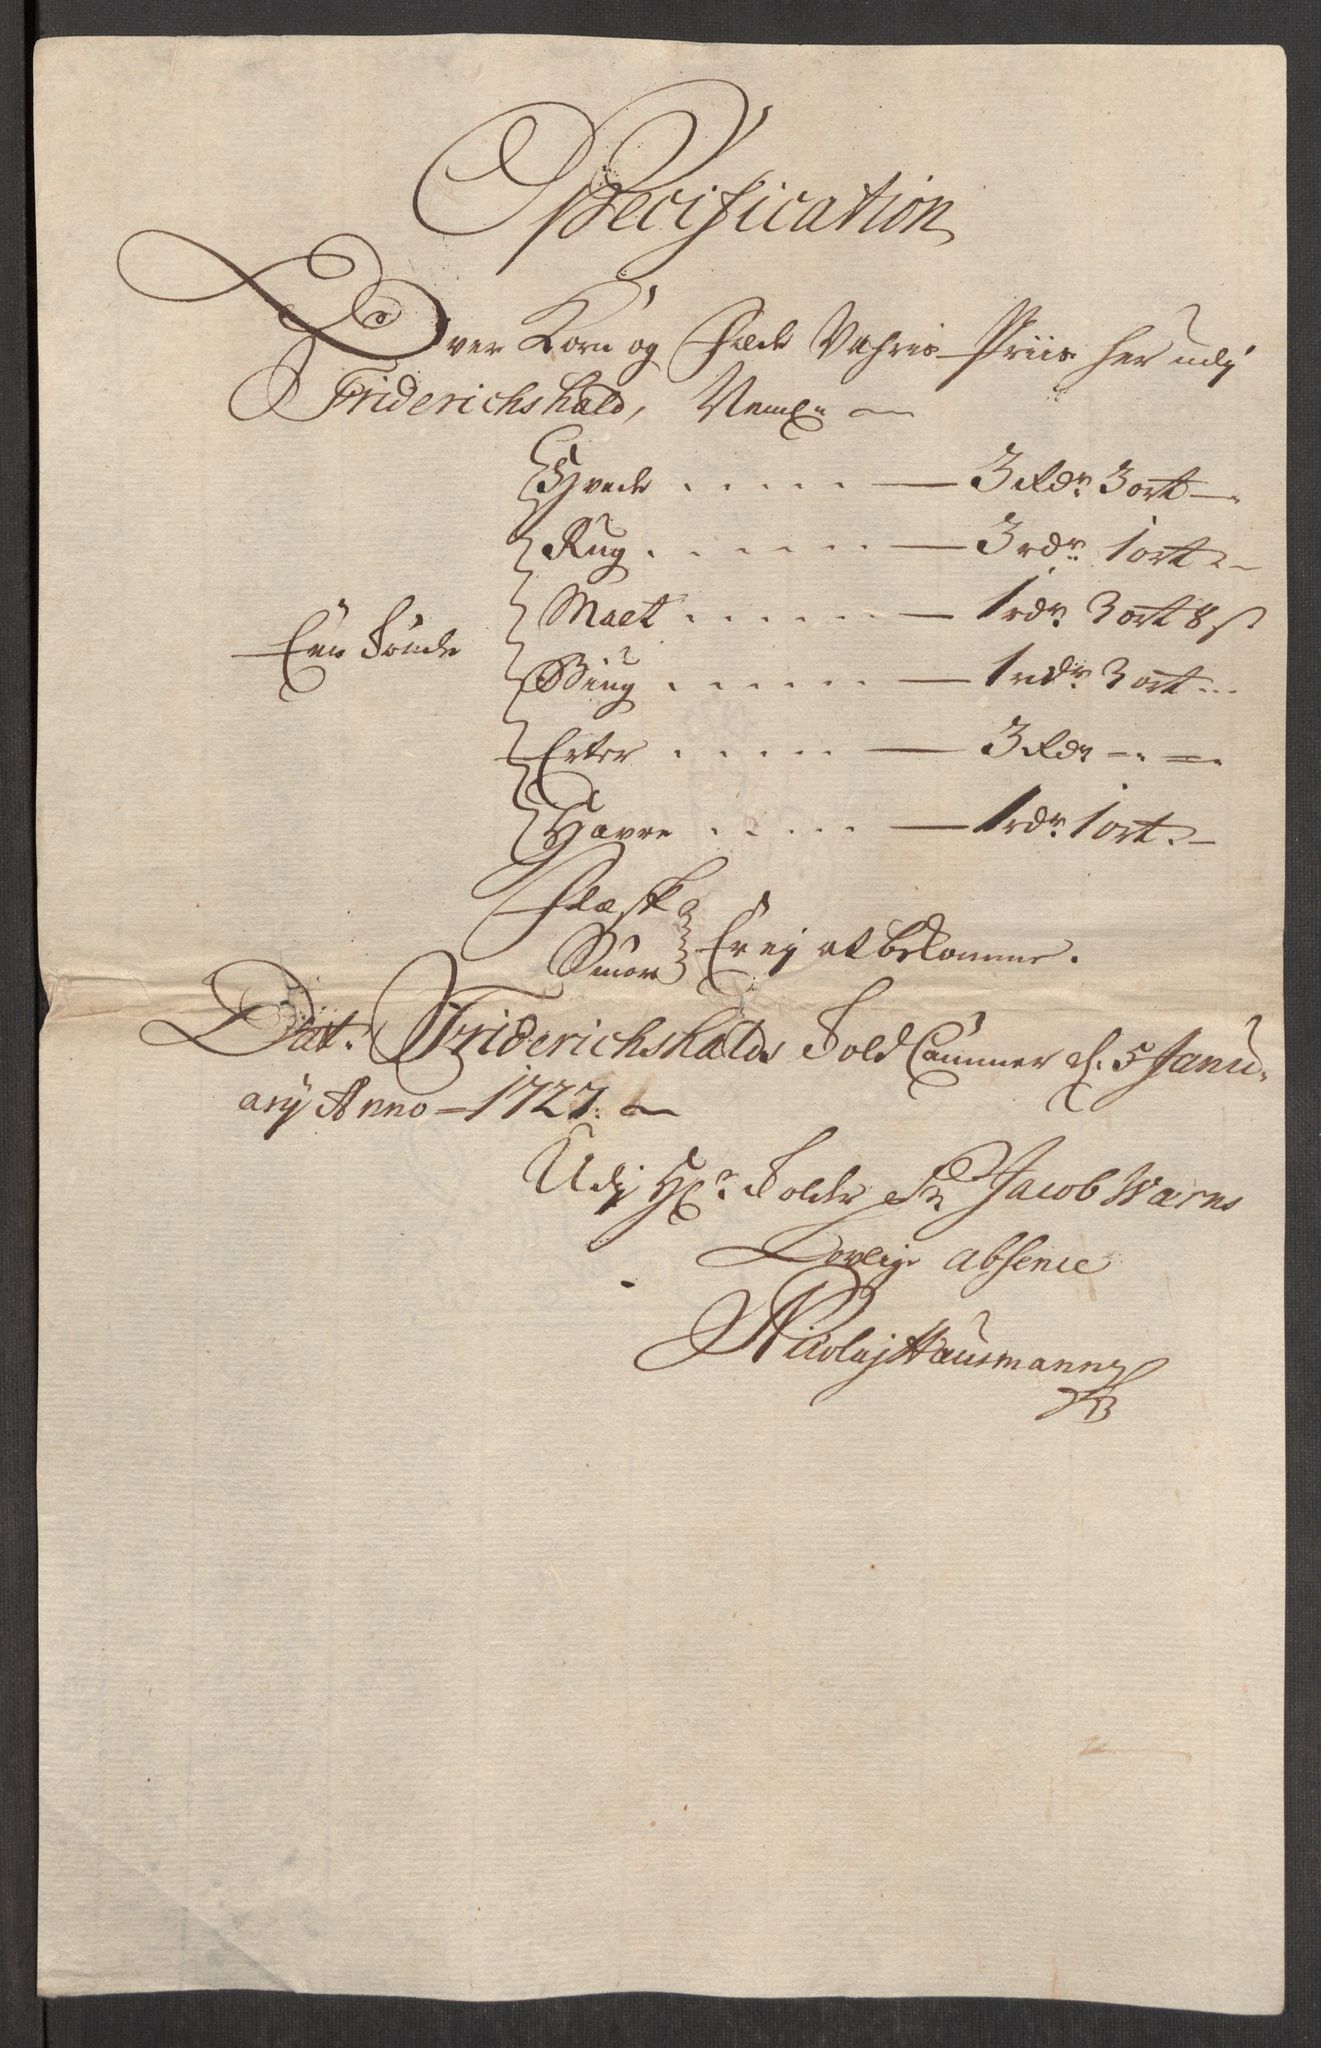 Specification
Over Korn og Fæde Vahris Priis her udj
Friderichshald, Nemln
Hvede . . . . . — 3 Rdr 3 ort —
Rug . . . . . . — 3 rdr 1 ort —
Een Tönde Malt . . . . . . — 1 rdr 3 ort 8 s
Biug . . . . . . — 1 rdr 3 ort —
Erter . . . . . — 3 Rdr — —
Havre . . . . . — 1 rdr 1 ort —
Flæsk
Smör } Er ej at bekomme.
Dat: Friderichshalds Told Cammer d. 5 Janu-
arij Anno — 1727.
Udj Hr. Tolder Sr Jacob Wærns
Lovlige absence
Nicolaj Hausmann